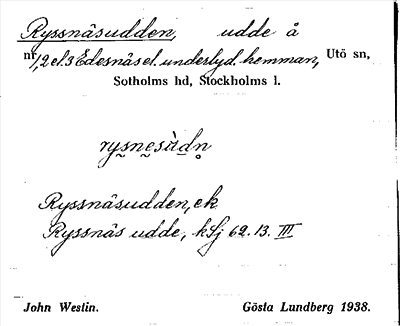 Ryssnäsudden, udde å
nr 1,2 el. 3 Edesnäs el. underlyd. hemman, Utö sn,
Sotholms hd, Stockholms l.
rysnesùdn
Ryssnäsudden, ek
Ryssnäs udde, hSj 62. 13. III
John Westin. Gösta Lundberg 1938.